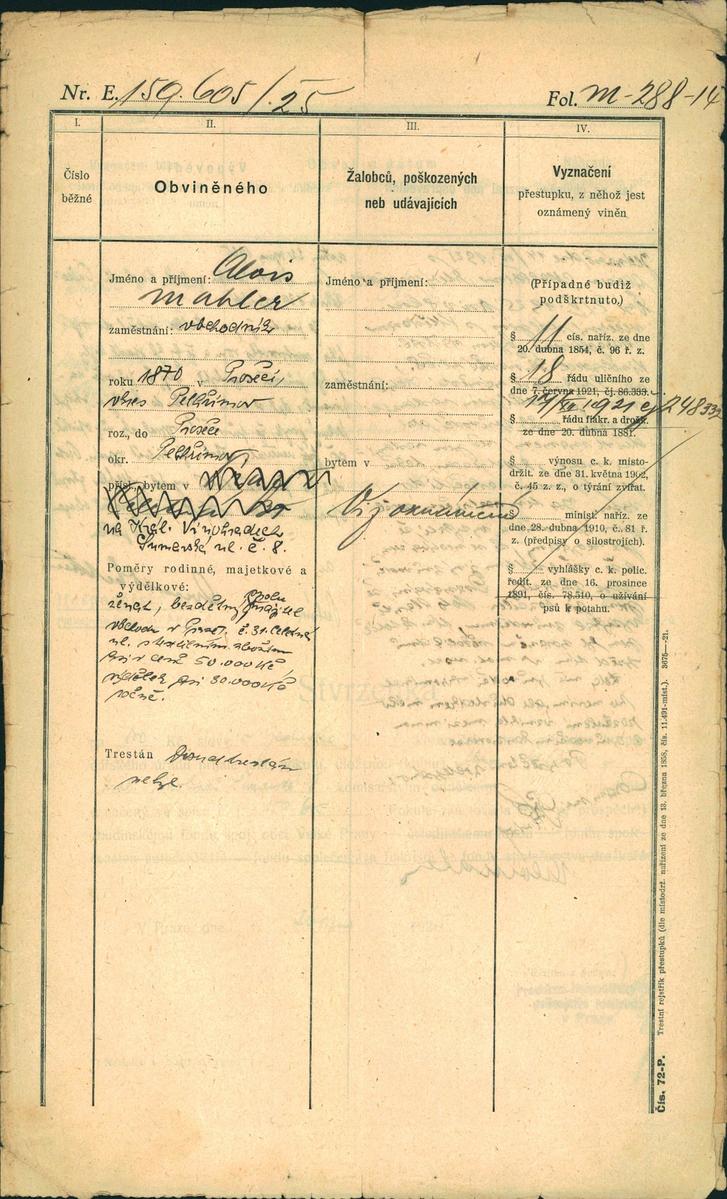 Nr. E. 159.605/25
Fol. M-288-14
I. II. III. IV.
Číslo
běžné
Obviněného
Žalobců, poškozených
neb udávajících
Vyznačení
přestupku, z něhož jest
oznámený viněn
Jméno a příjmení: Alois
Mahler
zaměstnání: obchodník
roku 1870 v Proseči,
okres Pelhřimov
roz., do Proseče
okr. Pelhřimov
přísl. bytem v
na Král. Vinohradech
Šumavská ul. č. 8.
Poměry rodinné, majetkové a
výdělkové:
ženat, bezdětný, spolu
majitel
obchodu v Praze I. č. 31. Celetná
ul. s
v ceně 50.000 Kč
výdělek 30.000 Kč
ročně.
Trestán
nebyl.
Jméno a příjmení:
zaměstnání:
bytem v
Viz oznámení
(Případné budiž
podškrtnuto.)
§ 11 cís. naříz. ze dne
20. dubna 1854, č. 96 ř. z.
§ 18 řádu uličního ze
dne 7. června 1921, čj. 86.333.
1921 čj 248332
§ řádu fiakr. a drožk.
ze dne 20. dubna 1881.
§ výnosu c. k. místo-
držit. ze dne 31. května 1902,
č. 45 z. z., o týrání zvířat.
§ minist. naříz. ze
dne 28. dubna 1910, č. 81 ř.
z. (předpisy o silostrojích).
§ vyhlášky c. k. polic.
ředit. ze dne 16. prosince
1891, čís. 78.510, o užívání
psů k potahu.
Čís. 72-P. Trestní rejstřík přestupků (dle místodrž. nařízení ze dne 13. března 1858, čís. 11.491-míst.). 3675—21.